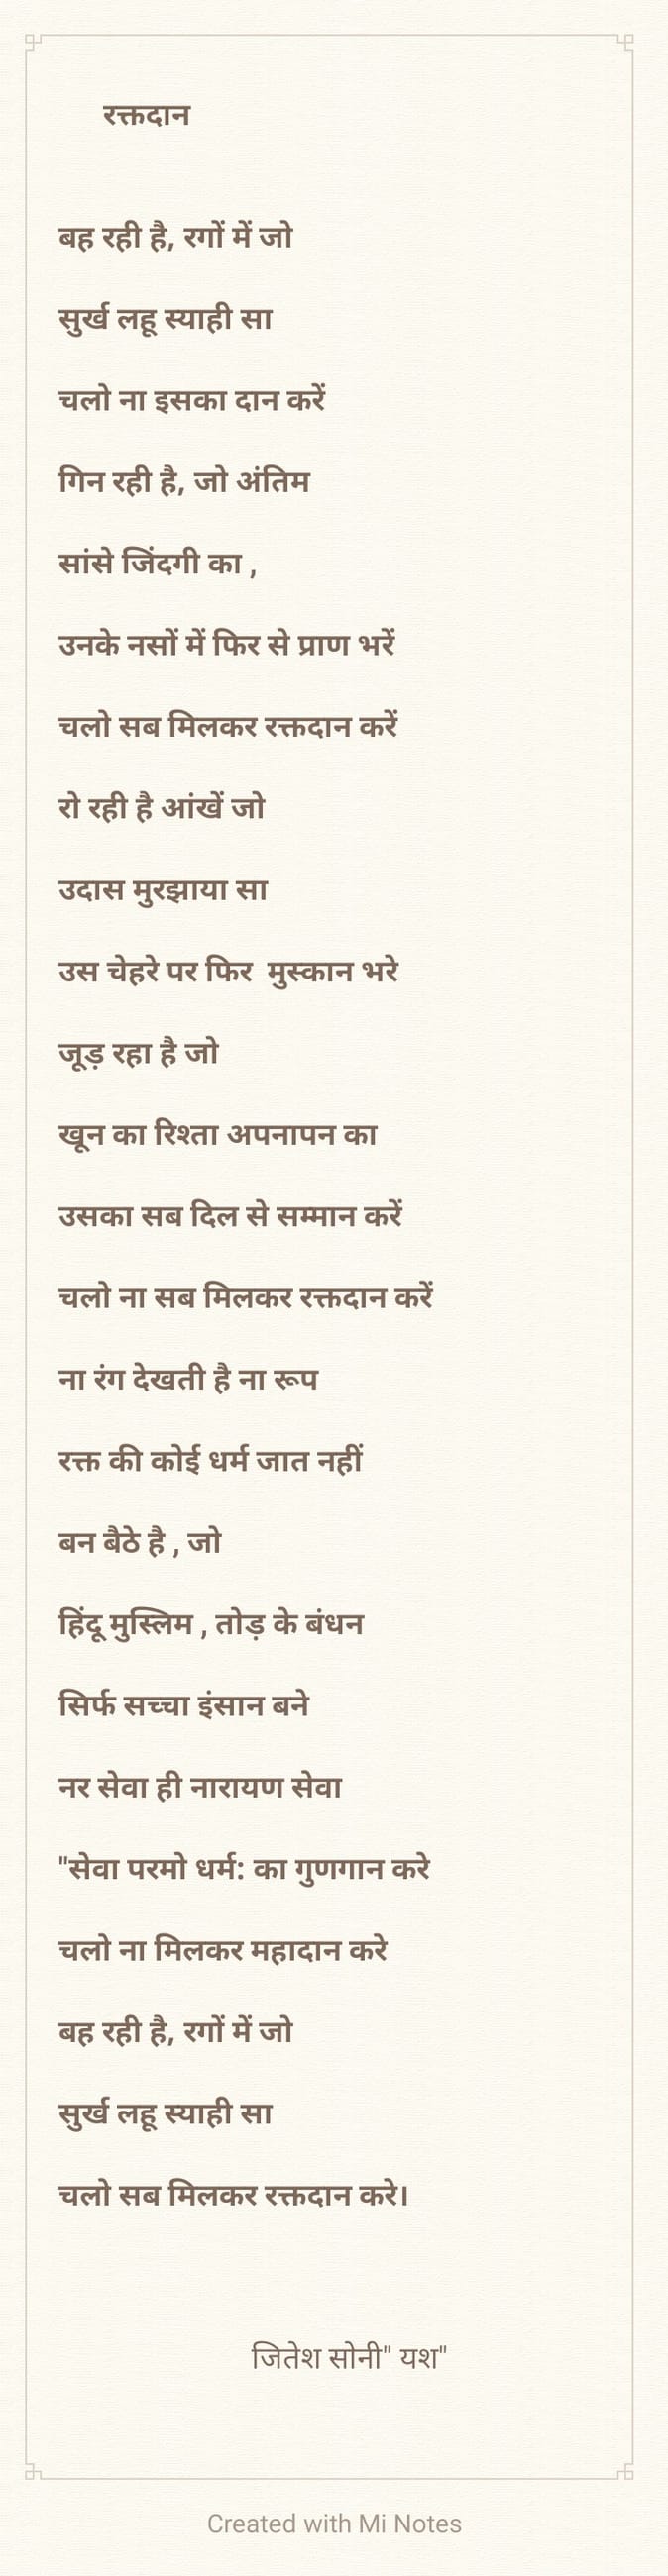 रक्तदान
बह रही है, रगों में जो
सुर्ख लहू स्याही सा
चलो ना इसका दान करें
गिन रही है, जो अंतिम
सांसे जिंदगी का ,
उनके नसों में फिर से प्राण भरें
चलो सब मिलकर रक्तदान करें
रो रही है आंखें जो
उदास मुरझाया सा
उस चेहरे पर फिर  मुस्कान भरे
जूड़ रहा है जो
खून का रिश्ता अपनापन का
उसका सब दिल से सम्मान करें
चलो ना सब मिलकर रक्तदान करें
ना रंग देखती है ना रूप
रक्त की कोई धर्म जात नहीं
बन बैठे है , जो
हिंदू मुस्लिम , तोड़ के बंधन
सिर्फ सच्चा इंसान बने
नर सेवा ही नारायण सेवा
"सेवा परमो धर्म: का गुणगान करे
चलो ना मिलकर महादान करे
बह रही है, रगों में जो
सुर्ख लहू स्याही सा
चलो सब मिलकर रक्तदान करे।
जितेश सोनी" यश"
Created with Mi Notes